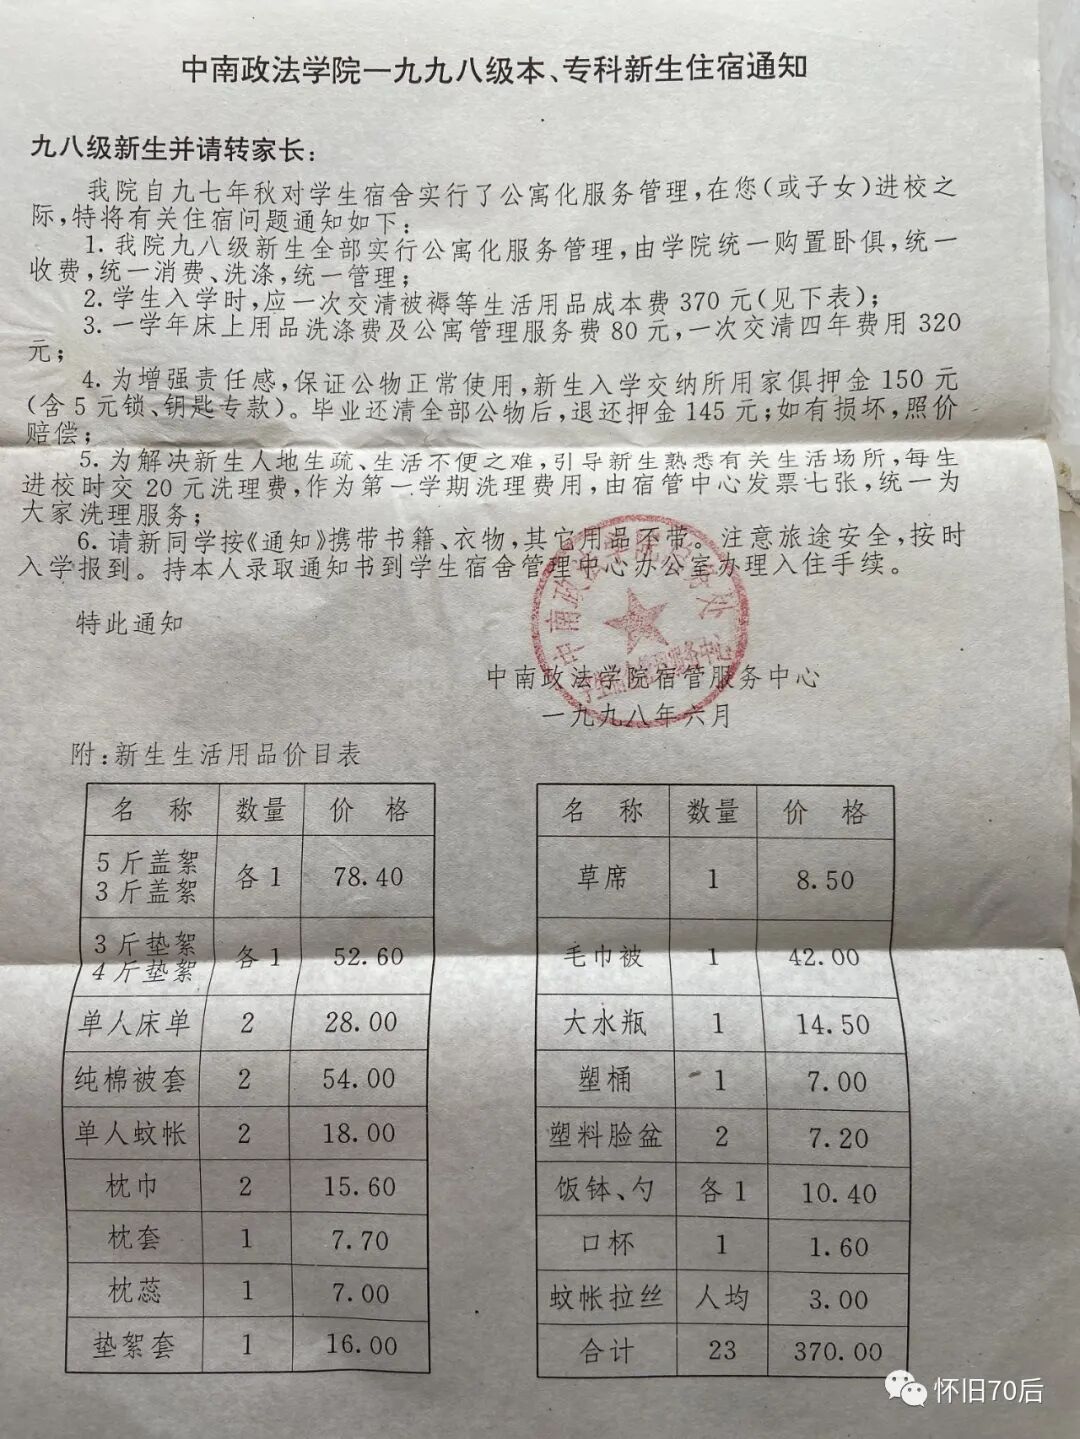 中南政法学院一九九八级本、专科新生住宿通知
九八级新生并请转家长：
我院自九七年秋对学生宿舍实行了公寓化服务管理，在您(或子女)进校之
际，特将有关住宿问题通知如下：
1.我院九八级新生全部实行公寓化服务管理，由学院统一购置卧俱，统一
收费，统一消费、洗涤，统一管理；
2.学生入学时，应一次交清被褥等生活用品成本费370元(见下表)；
3.一学年床上用品洗涤费及公寓管理服务费80元，一次交清四年费用320
元；
4.为增强责任感，保证公物正常使用，新生入学交纳所用家俱押金150元
(含5元锁、钥匙专款)。毕业还清全部公物后，退还押金145元；如有损坏，照价
赔偿；
5.为解决新生人地生疏、生活不便之难，引导新生熟悉有关生活场所，每生
进校时交20元洗理费，作为第一学期洗理费用，由宿管中心发票七张，统一为
大家洗理服务；
6.请新同学按《通知》携带书籍、衣物，其它用品不带。注意旅途安全，按时
入学报到。持本人录取通知书到学生宿舍管理中心办公室办理入住手续。
特此通知
中南政法学院宿管服务中心
一九九八年六月
附：新生生活用品价目表
名 称 数量 价 格
5斤盖絮
3斤盖絮 各1 78.40
3斤垫絮
4斤垫絮 各1 52.60
单人床单 2 28.00
纯棉被套 2 54.00
单人蚊帐 2 18.00
枕巾 2 15.60
枕套 1 7.70
枕蕊 1 7.00
垫絮套 1 16.00
名 称 数量 价 格
草席 1 8.50
毛巾被 1 42.00
大水瓶 1 14.50
塑桶 1 7.00
塑料脸盆 2 7.20
饭钵、勺 各1 10.40
口杯 1 1.60
蚊帐拉丝 人均 3.00
合计 23 370.00
怀旧70后